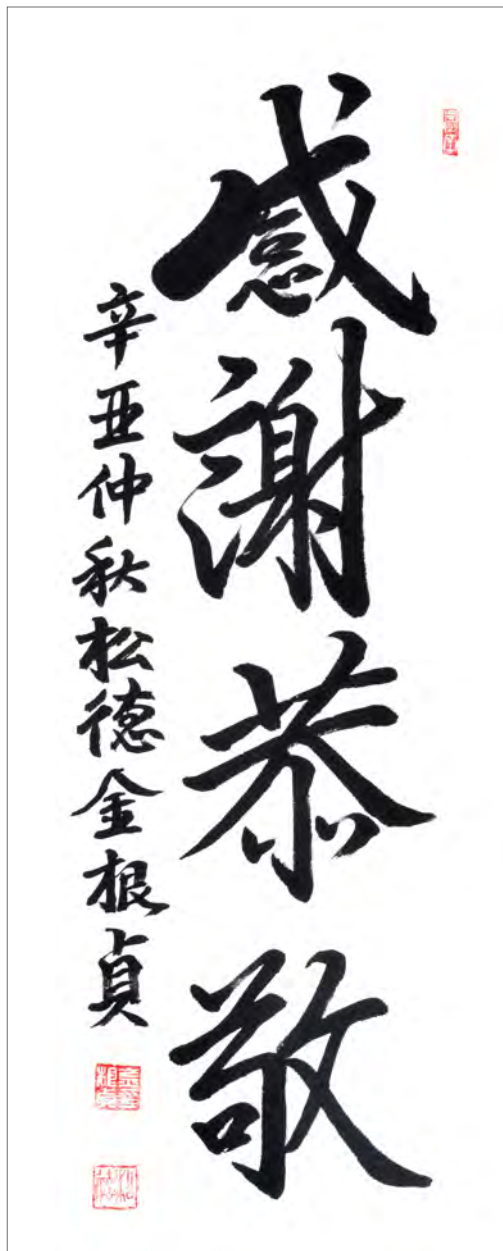 感謝恭敬
辛丑仲秋松德金根貞